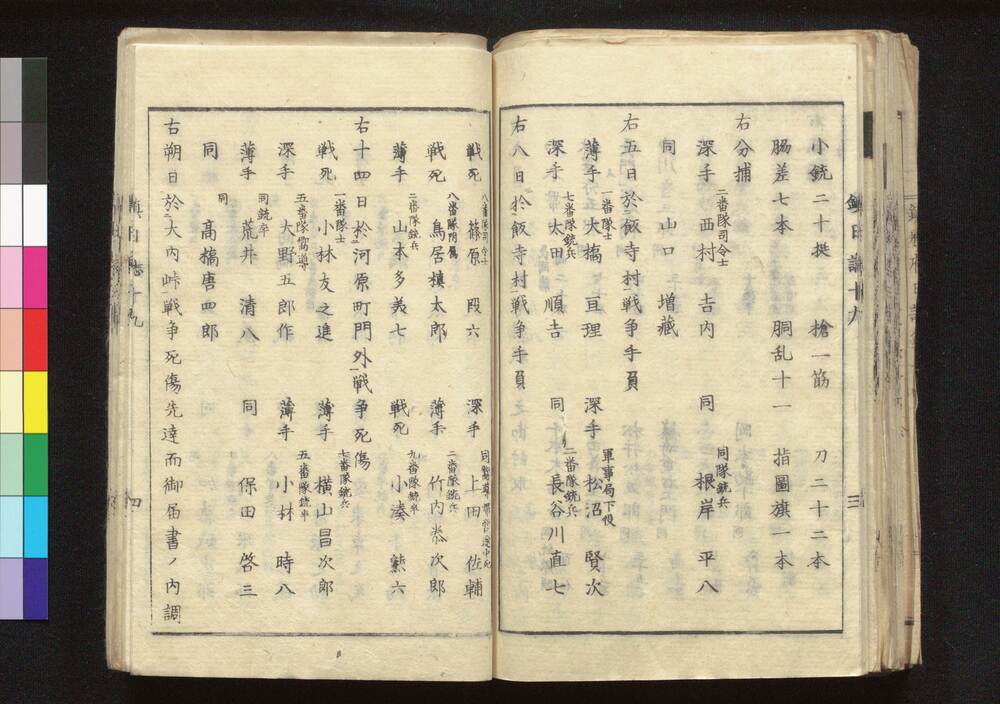 小銃二十挺　槍一筋　刀二十二本
脇差七本　胴乱十一　指圖旗一本
右分捕
二番隊司令士
深手　西村　吉内
同隊銃兵
同　根岸　平八
同　山口　増藏
右五日於飯寺村戦争手負
一番隊士
薄手　大橋　亘理
軍事局下役
深手　松沼　賢次
七番隊銃兵
深手　太田　順吉
二番隊銃兵
同　長谷川直七
右八日於飯寺村戦争手負
三
八番隊司令士
戦死　篠原　段六
深手　上田　佐輔
八番隊附属
戦死　鳥居槙太郎
二番隊銃兵
薄手　竹内恭次郎
二番隊銃兵
薄手　山本多美七
九番隊銃卒
戦死　小湊　熊六
右十四日於河原町門外戦争死傷
一番隊士
戦死　小林友之進
七番隊銃兵
薄手　横山昌次郎
五番隊嚮導
深手　大野五郎作
五番隊銃卒
薄手　小林　時八
同銃卒
薄手　荒井　清八
同　保田　啓三
同
同　高橋唐四郎
右朔日於大内峠戦争死傷先達而御届書ノ内調
四